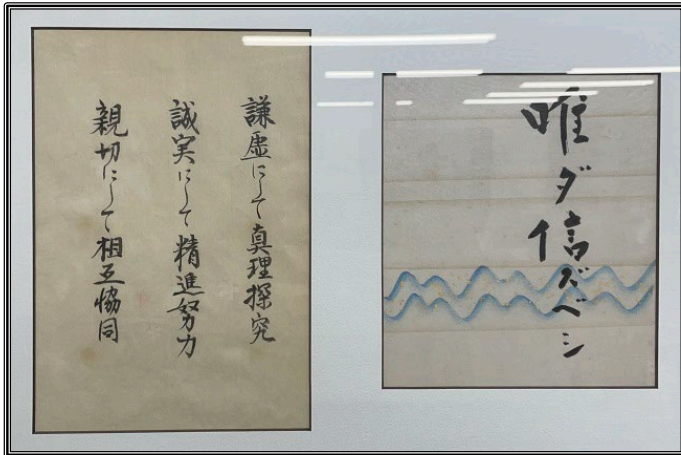 謙虚にして真理探究
誠実にして精進努力
親切にして相互協同
唯ダ信ズベシ